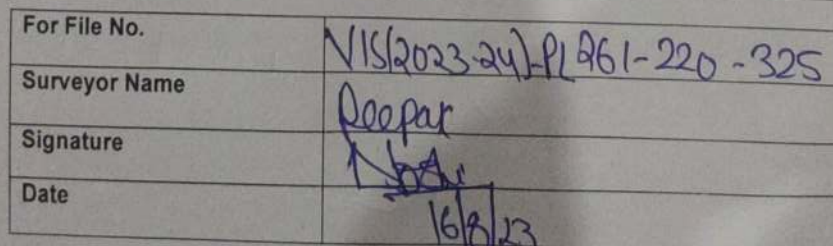 For File No. VIS(2023-24)-PL261-220-325
Surveyor Name Deepak
Signature
Date 16/8/23